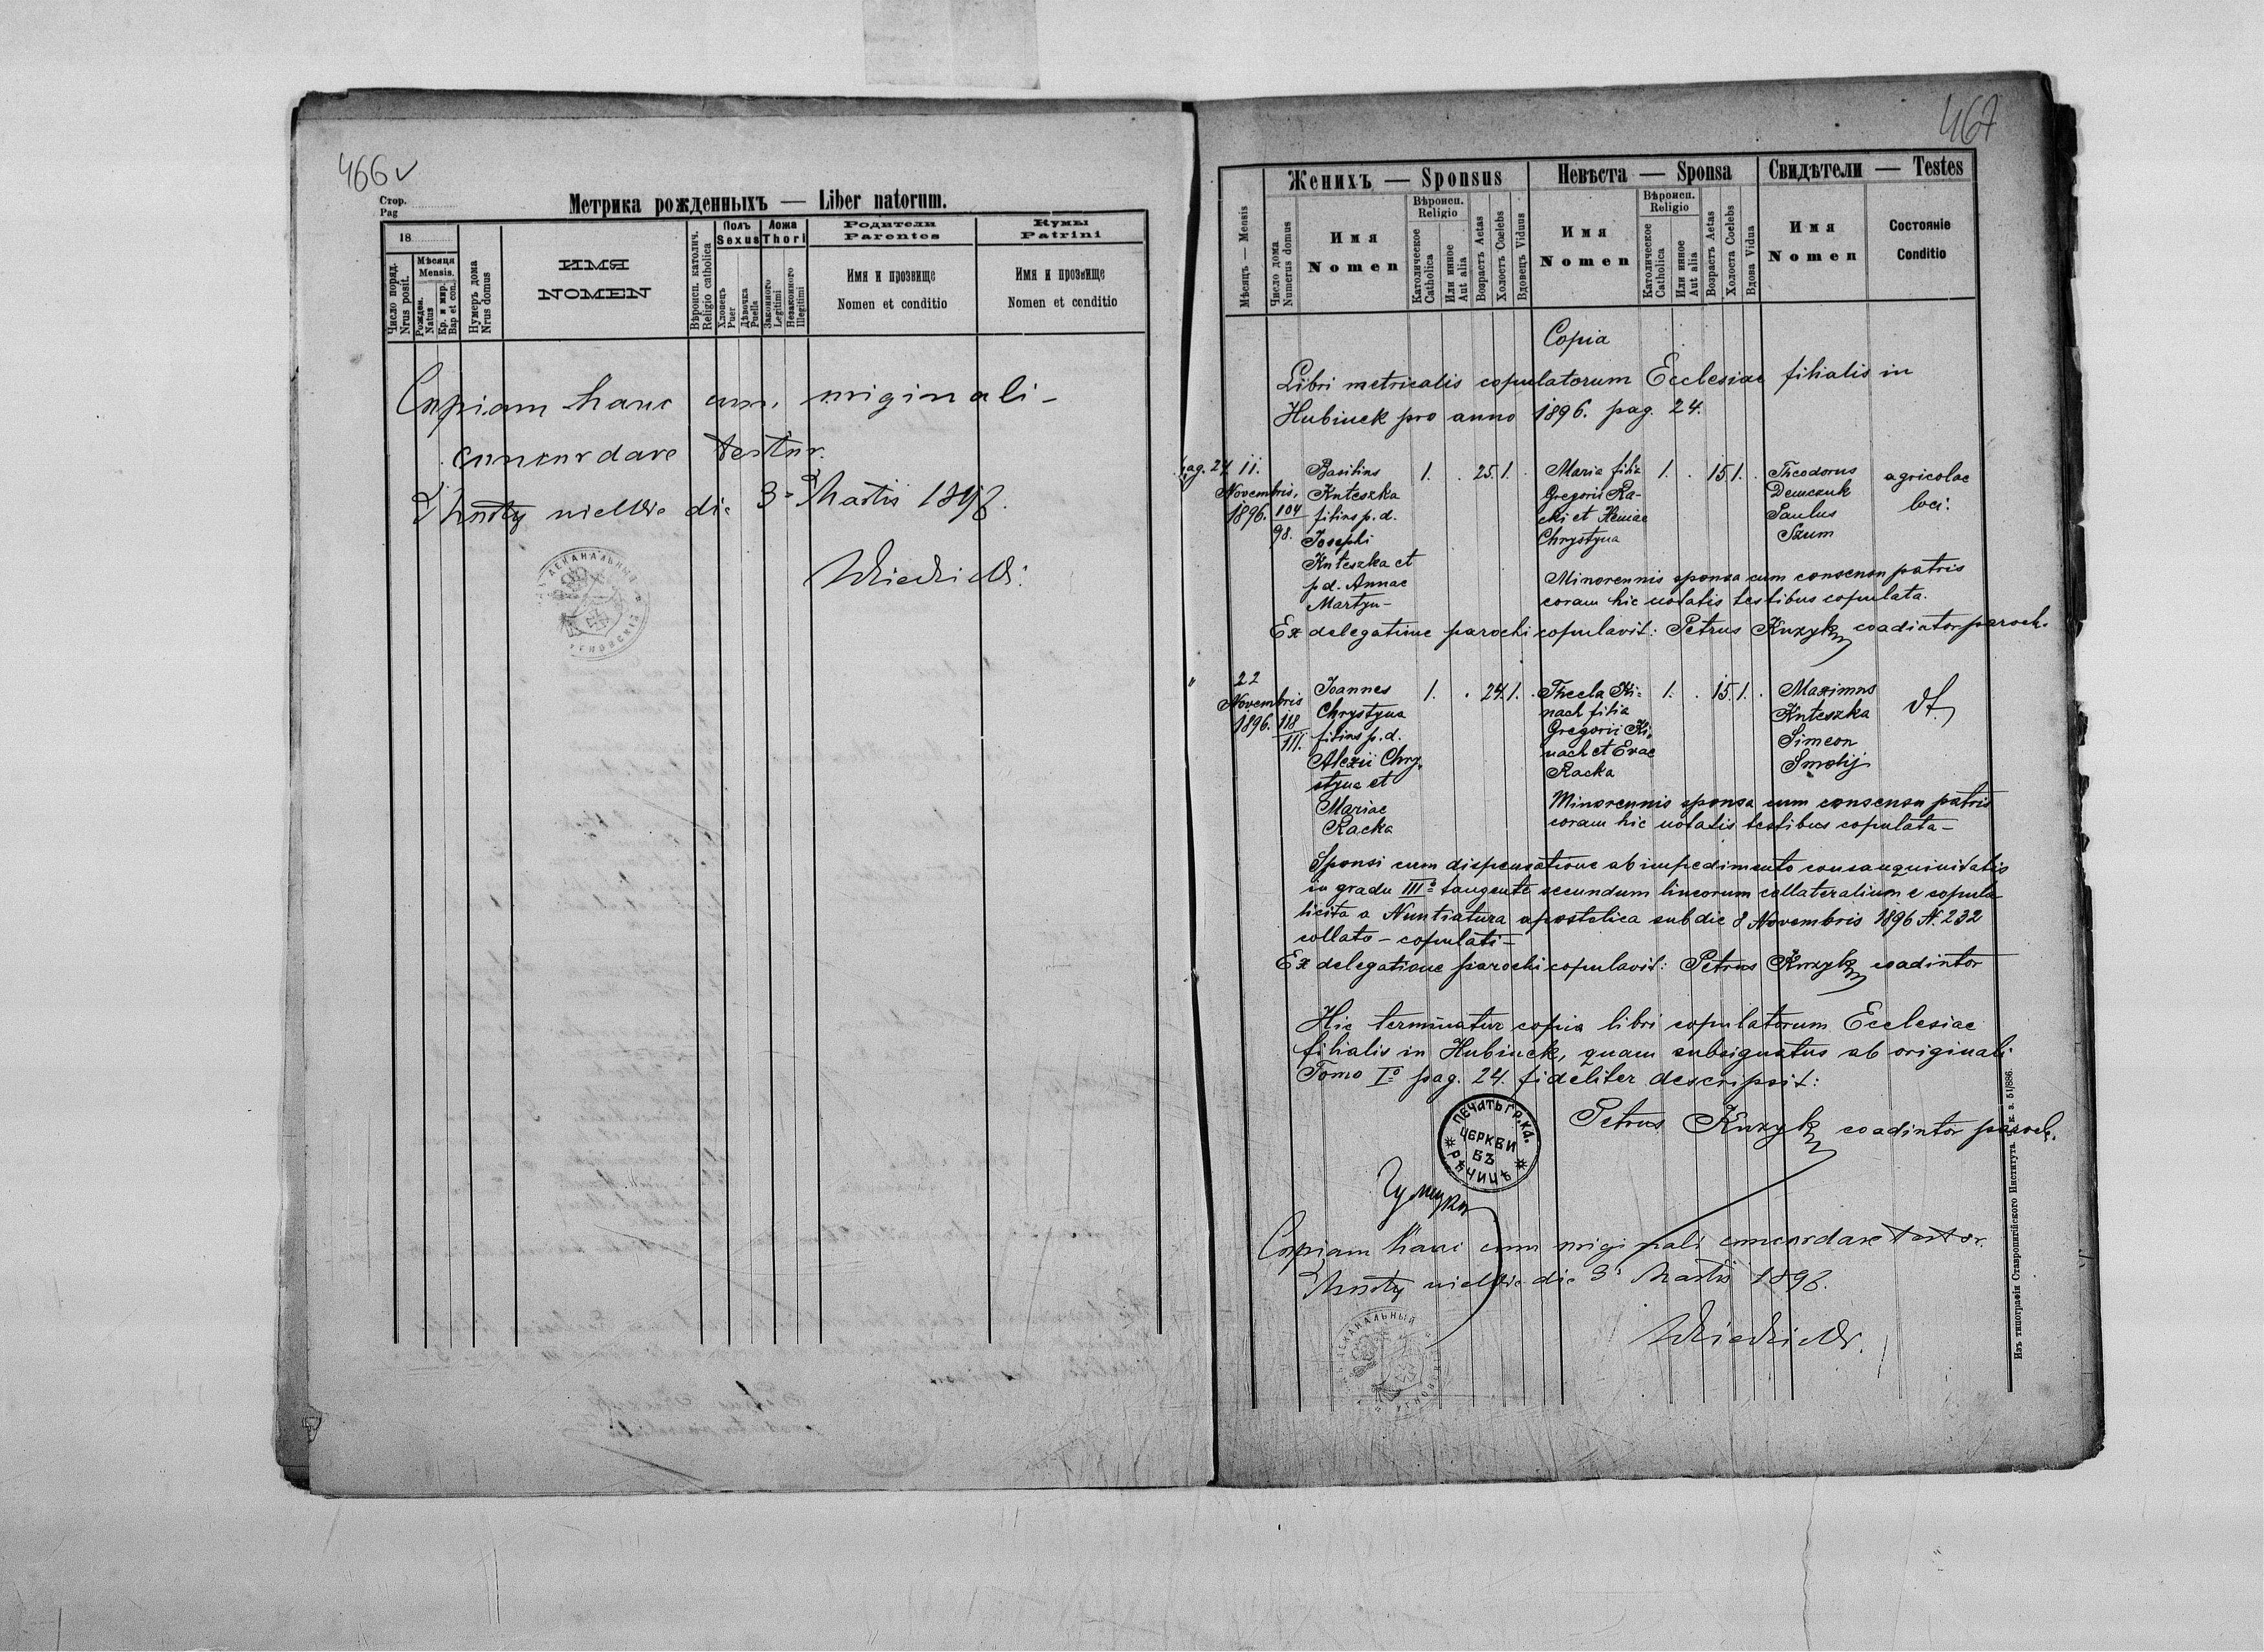 466v
Стор.
Pag
Метрика рожденныхъ — Liber natorum.
18
Число поряд.
Nrus posit.
Мѣсяця
Mensis.
Рожден.
Natus
Кр. и мир.
Bap et con.
Нумеръ дома
Nrus domus
ИМЯ
NOMEN
Вѣроисп. католич.
Religio catholica
Полъ
Sexus
Хлопецъ
Puer
Дѣвочка
Puella
Ложа
Thori
Законного
Legitimi
Незаконного
Illegitimi
Родители
Parentes
Имя и прозвище
Nomen et conditio
Кумы
Patrini
Имя и прозвище
Nomen et conditio
Copiam hanc cum originali-
concordare testor.
die 3a Martis 1898.
467
Женихъ — Sponsus
Невѣста — Sponsa
Свидѣтели — Testes
Мѣсяцъ — Mensis
Число дома
Numerus domus
Имя
Nomen
Вѣроисп.
Religio
Католическое
Catholica
Или инное
Aut alia
Возрастъ Aetas
Холостъ Coelebs
Вдовецъ Viduus
Имя
Nomen
Вѣроисп.
Religio
Католическое
Catholica
Или инное
Aut alia
Возрастъ Aetas
Холоста Coelebs
Вдова Vidua
Имя
Nomen
Состоянiе
Conditio
Copia
Libri metricalis copulatorum Ecclesiae filialis in
Hubinek pro anno 1896. pag. 24.
pag. 24 11. Basilius 1. . 25. 1. Maria filia 1. . 15 1. . Theodorus agricolae
Novembris, Kuteszka Gregorii Ra- Demczuk loci.
1896. 104 filius p. d. cki et Xeniae Paulus
98. Josephi Chrystyna Szum
Kuteszka et
p. d. Annae Minorennis sponsa cum consensu patris
Martyn- coram hic notatis testibus copulata.
Ex delegatione parochi copulavit: Petrus Kuzyk coadiutor paroch.
" 22 Joannes 1. . 24 1. . Thecla Ki- 1. . 15 1. . Maximus dt
Novembris Chrystyna nach filia Kuteszka
1896. 118 filius p. d. Gregorii Ki- Simeon
111. Alexii Chry- nach et Evae Smolij
styna et Racka
Mariae Minorennis sponsa cum consensu patris
Racka coram hic notatis testibus copulata-
Sponsi cum dispensatione ab impedimento consanquinitatis
in gradu IIIo tangente secundum lineorum collateralium e copula
licita a Nuntiatura apostolica sub die 8 Novembris 1896 N. 232
collato - copulati-
Ex delegatione parochi copulavit: Petrus Kuzyk coadiutor
Hic terminatur copia libri copulatorum Ecclesiae
filialis in Hubinek, quam subsignatus ab originali
Tomo Io pag. 24. fideliter descripsit:
Petrus Kuzyk coadiutor paroch.
ПЕЧАТЬ ГР. КА.
ЦЕРКВИ
ВЪ
РѢЧИЦѢ
Copiam hanc cum originali concordare testor.
die 3a Martis 1898.
ДЕКАНАЛЬНЫЙ
Изъ типографiи Ставропигiйского Института. ц. к. з. 51/886.